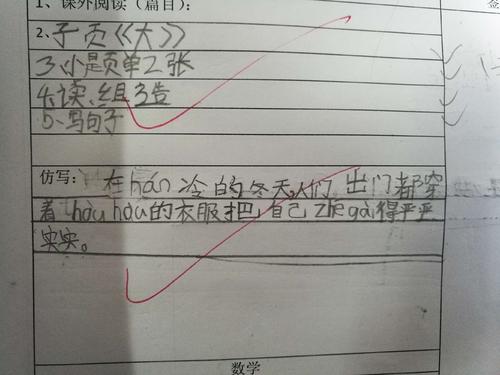 1、课外阅读（篇目）：
2、子页《大》
3.小是页单2张
4.读、组3造
5、写句子
仿写： 在hán冷的冬天，人们出门都穿
着hòu hòu的衣服把自己zhē gài得严严
实实。
数学